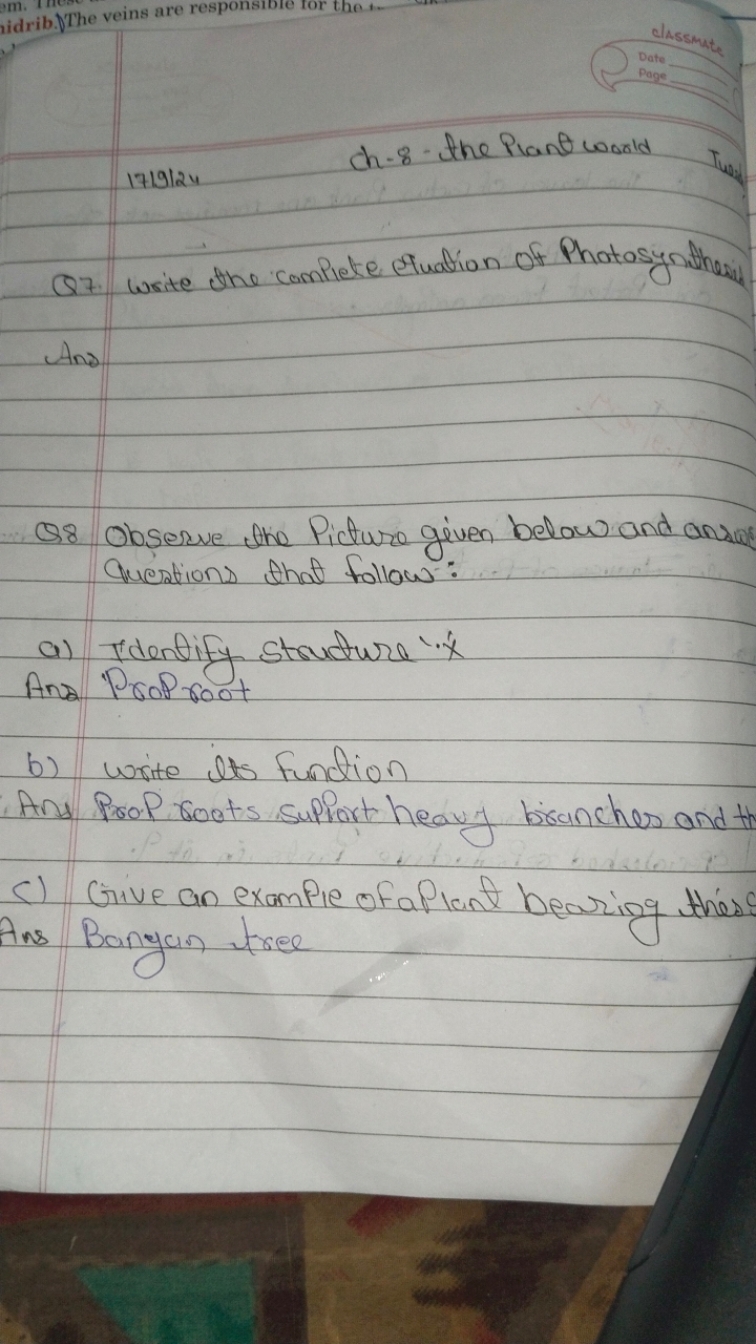 The veins are responsible for the
classmate
Date
Page
17/9/24
Ch-8 - the Plant woorld
Q7. Write the complete equation of Photosynthesis
Ans
Q8 Observe the Picture given below and
Questions that follow:
a) Identify structure 'x
Ans Prop root
b) write its function
Ans Prop roots support heavy branches and th
c) Give an example of a Plant bearing thes
Ans Bangan tree